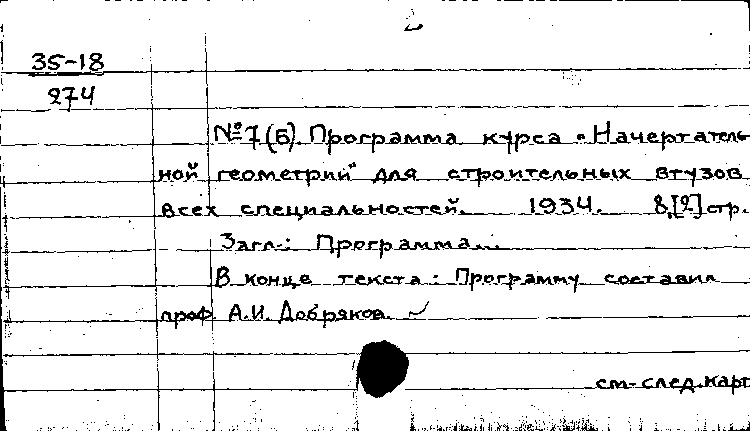 2
35-18
274
№ 7 (Б). Программа курса „Начертатель-
ной геометрии" для строительных втузов
всех специальностей. 1934. 8,[2] стр.
Загл.: Программа...
В конце текста: Программу составил
проф. А.И. Добряков.
см. след. карт